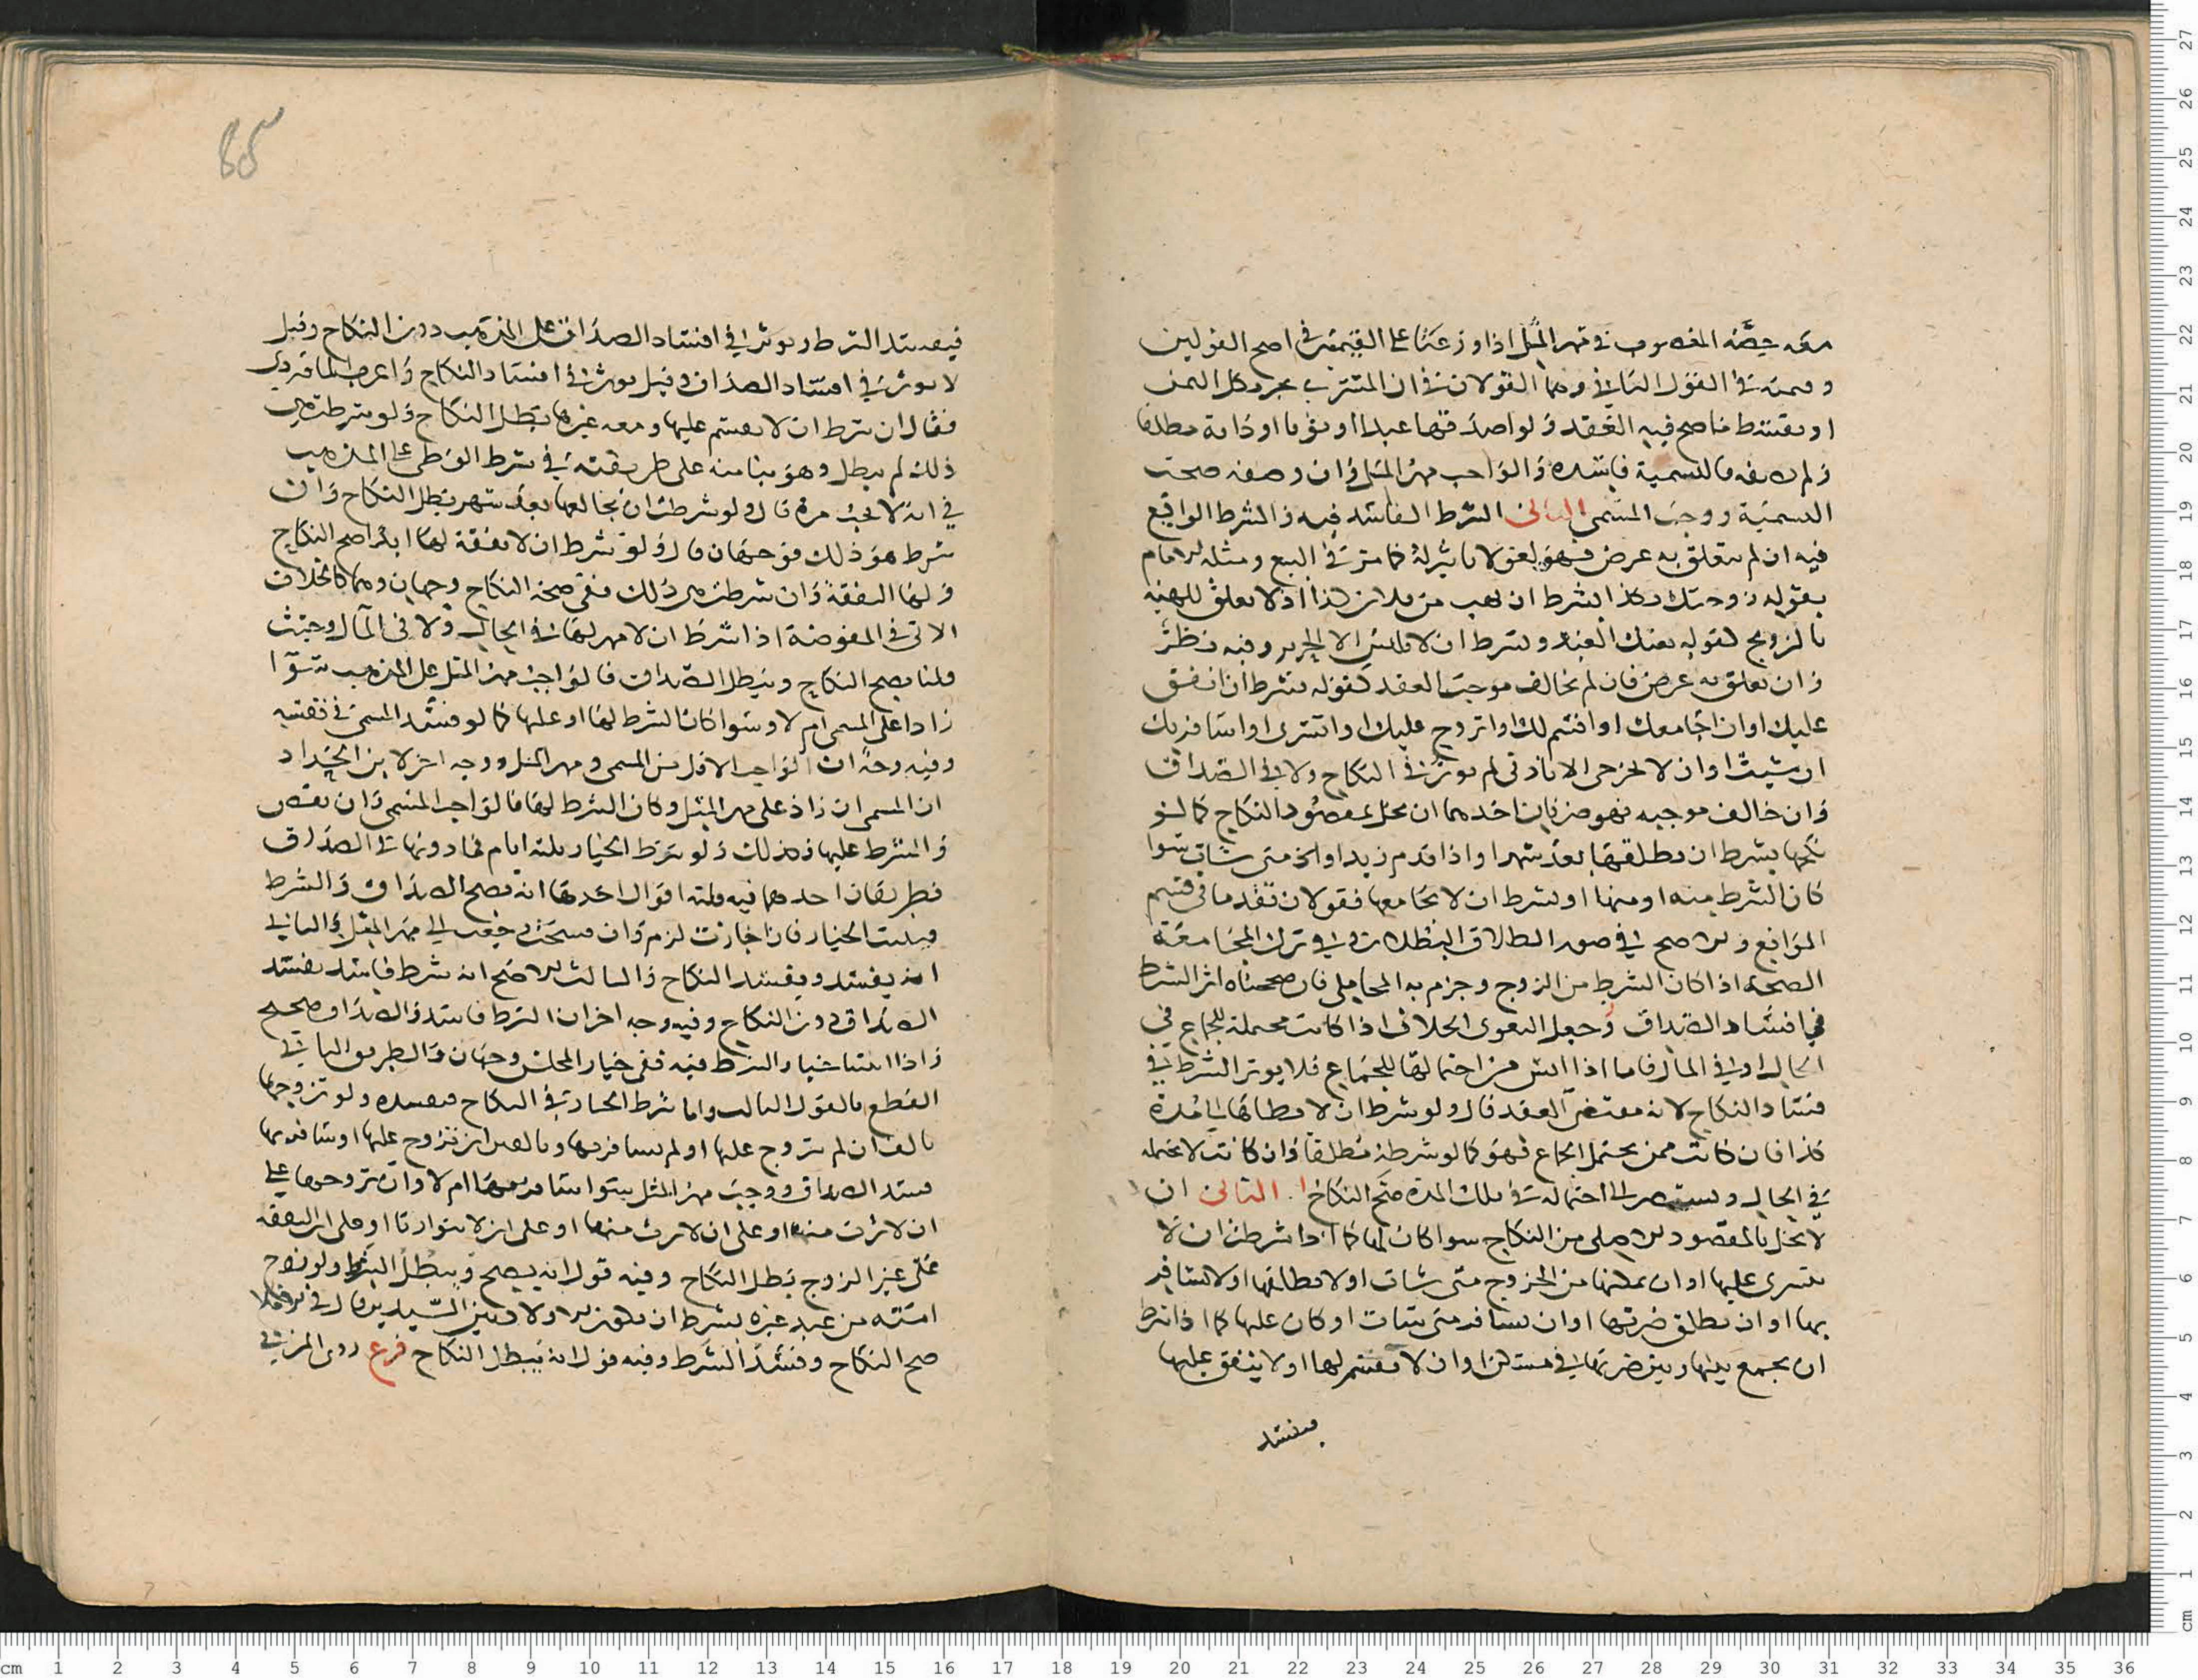 معه حصة المغصوب من مهر المثل اذا وزعنا على القيمة في اصح القولين
وقيمته في القول الثاني وهما القولان في ان المشتري يجير بكل الثمن
او بقسط ما صح فيه العقد ولو اصدقها عبدا او ثوبا او دابة مطلقا
ولم يصفه فالتسمية فاسدة والواجب مهر المثل وان وصفه صحت
التسمية ووجب المسمى الثاني الشرط الفاسد فيه والشرط الواقع
فيه ان لم يتعلق به غرض فهو لغو لا تاثير له كما مر في البيع ومثله الامام
بقوله زوجتك كذا بشرط ان تهب من فلان كذا اذ لا تعلق للهبة
بالتزويج كقوله بعتك العبد بشرط ان لا تلبس الا الحرير وفيه نظر
وان تعلق به غرض فان لم يخالف موجب العقد كقوله بشرط ان انفق
عليك او ان اجامعك او اقسم لك او اتزوج عليك او اتسرى او اسافر بك
ان شئت او ان لا تخرجي الا باذني لم يوثر في النكاح ولا في الصداق
وان خالف موجبه فهو ضربان احدهما ان يخل بمقصود النكاح كما لو
نكحها بشرط ان يطلقها بعد شهر او اذا قدم زيد او متى شات سوا
كان الشرط منه او منها او بشرط ان لا يجامعها فقولان تقدما في قسم
الموانع والاصح في صور الطلاق البطلان وفي ترك المجامعة
الصحة اذا كان الشرط من الزوج وجزم به المحاملي فان صححناه اثر الشرط
في افساد الصداق وجعل البغوي الخلاف اذا كانت محتملة للجماع في
الحال او في المال فاما اذا ايس من احتمالها للجماع فلا يوثر الشرط في
فساد النكاح لانه مقتضى العقد قال ولو شرط ان لا يطاها الى مدة
كذا فان كانت ممن يحتمل الجماع فهو كما لو شرطه مطلقا وان كانت لا تحتمله
في الحال احتماله في تلك المدة صح النكاح الثاني ان
لا يخل بالمقصود الاصلي من النكاح سوا كان لها كما اذا شرطت ان لا
يتسرى عليها او ان يمكنها من الخروج متى شات او لا يطلقها او لا يسافر
بها او ان يطلق ضرتها او ان تسافر متى شات او كان عليها كما اذا شرط
ان يجمع بينها وبين ضرتها في مسكن او ان لا يقسم لها او لا ينفق عليها
فيفسد
85
فيفسد الشرط ويوثر في افساد الصداق على المذهب دون النكاح وقيل
لا يوثر في افساد الصداق وقيل يوثر في افساد النكاح
فقال ان شرط ان لا يقسم عليها ومعه غيرها بطل النكاح ولو شرطت هي
ذلك لم يبطل وهو بنا منه على طريقته في شرط الوطي على المذهب
في انه لا يجب مرة قال ولو شرطت ان يخالعها بعد شهر بطل النكاح وان
شرط هو ذلك فوجهان قال ولو شرط ان لا نفقة لها ابدا صح النكاح
ولها النفقة وان شرطت هي ذلك ففي صحة النكاح وجهان وهما كالخلاف
الاتي في المفوضة اذا شرط ان لا مهر لها في الحال ولا في المآل وحيث
قلنا يصح النكاح ويبطل الصداق فالواجب مهر المثل على المذهب سوا
زاد على المسمى ام لا وسوا كان الشرط لها او عليها كما لو فسد المسمى في نفسه
وفيه وجه ان الواجب الاقل من المسمى ومهر المثل ووجه اخر لابن الحداد
ان المسمى ان زاد على مهر المثل وكان الشرط لها فالواجب المسمى وان نقص
والشرط عليها فكذلك ولو شرط الخيار ثلثة ايام فما دونها في الصداق
فطريقان احدهما فيه ثلثة اقوال احدها انه يصح الصداق والشرط
فيثبت الخيار فان اجازت لزم وان فسخت رجعت الى مهر المثل والثاني
انه يفسد ويفسد النكاح والثالث الاصح انه شرط فاسد يفسد
الصداق دون النكاح وفيه وجه اخر ان الشرط فاسد والصداق صحيح
واذا اثبتنا خيار الشرط فيه ففي خيار المجلس وجهان والطريق الثاني
القطع بالقول الثالث واما شرط الخيار في النكاح فيفسده ولو تزوجها
بالف ان لم يتزوج عليها او لم يسافر بها وبالفين ان تزوج عليها او سافر بها
فسد الصداق ووجب مهر المثل سوا سافر بها ام لا وان تزوجها على
ان لا ترث منه او على ان لا يرث منها او على ان لا يتوارثا او على ان النفقة
على غير الزوج بطل النكاح وفيه قول انه يصح ويبطل الشرط ولو زوج
امته من عبد غيره بشرط ان يكون الاولاد بين السيدين قال في الاملا
صح النكاح وفسد الشرط وفيه قول انه يبطل النكاح فرع روى المزني